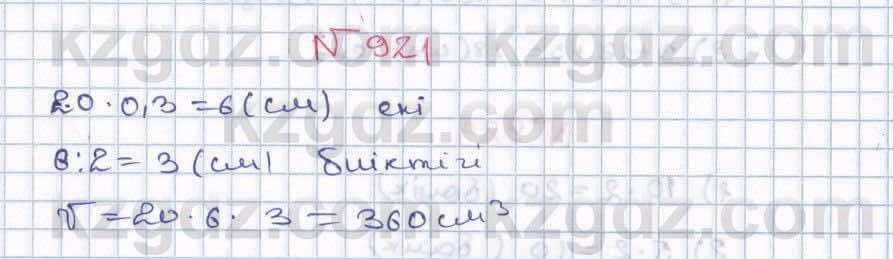 kzgdz.com kzgdz.com
№ 921
20 · 0,3 = 6 (см) ені
kzgdz.com
6 : 2 = 3 (см) биіктігі
V = 20 · 6 · 3 = 360 см³
kzgdz.com kzgdz.com